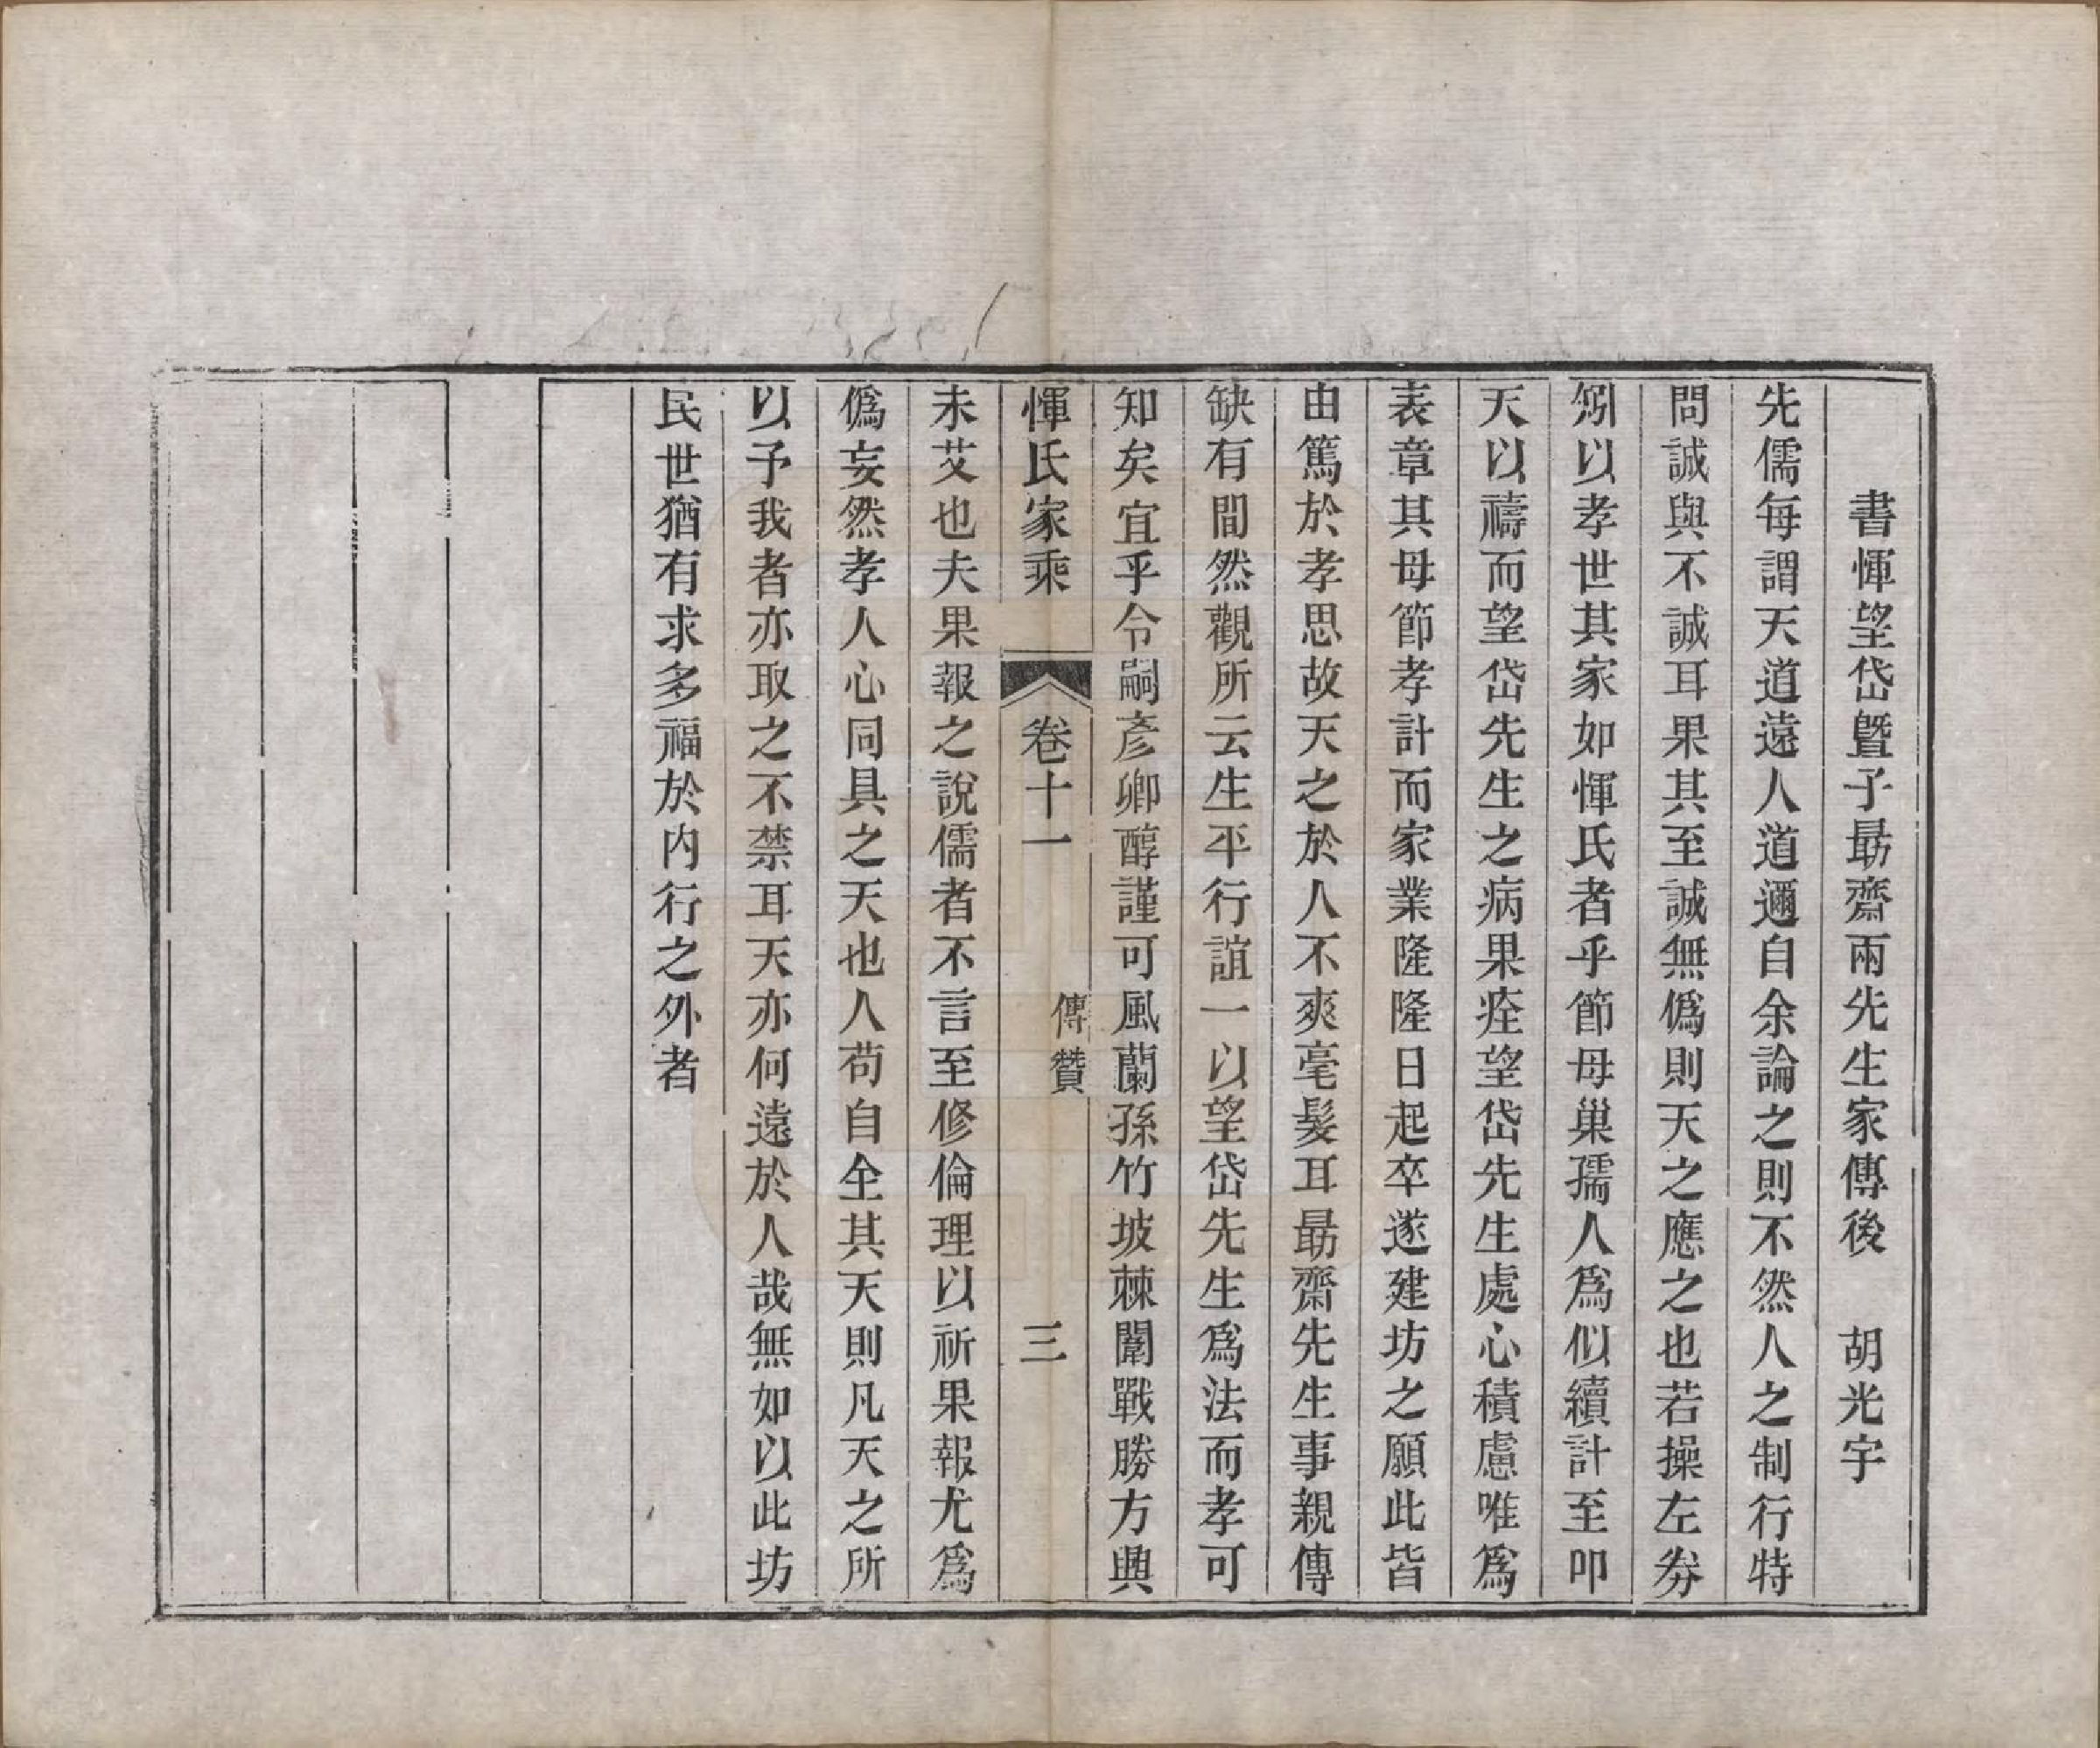 書惲望岱曁子勖齋兩先生家傳後　胡光宇
先儒每謂天道遠人道邇自余論之則不然人之制行特
問誠與不誠耳果其至誠無僞則天之應之也若操左劵
矧以孝世其家如惲氏者乎節母巢孺人爲似續計至叩
天以禱而望岱先生之病果痊望岱先生處心積慮唯爲
表章其母節孝計而家業隆隆日起卒遂建坊之願此皆
由篤於孝思故天之於人不爽毫髮耳勖齋先生事親傳
缺有間然觀所云生平行誼一以望岱先生爲法而孝可
知矣宜乎令嗣彥卿醇謹可風蘭孫竹坡棘闈戰勝方興
惲氏家乘　卷十一　傳贊　三
未艾也夫果報之說儒者不言至修倫理以祈果報尤爲
僞妄然孝人心同具之天也人苟自全其天則凡天之所
以予我者亦取之不禁耳天亦何遠於人哉無如以此坊
民世猶有求多福於内行之外者